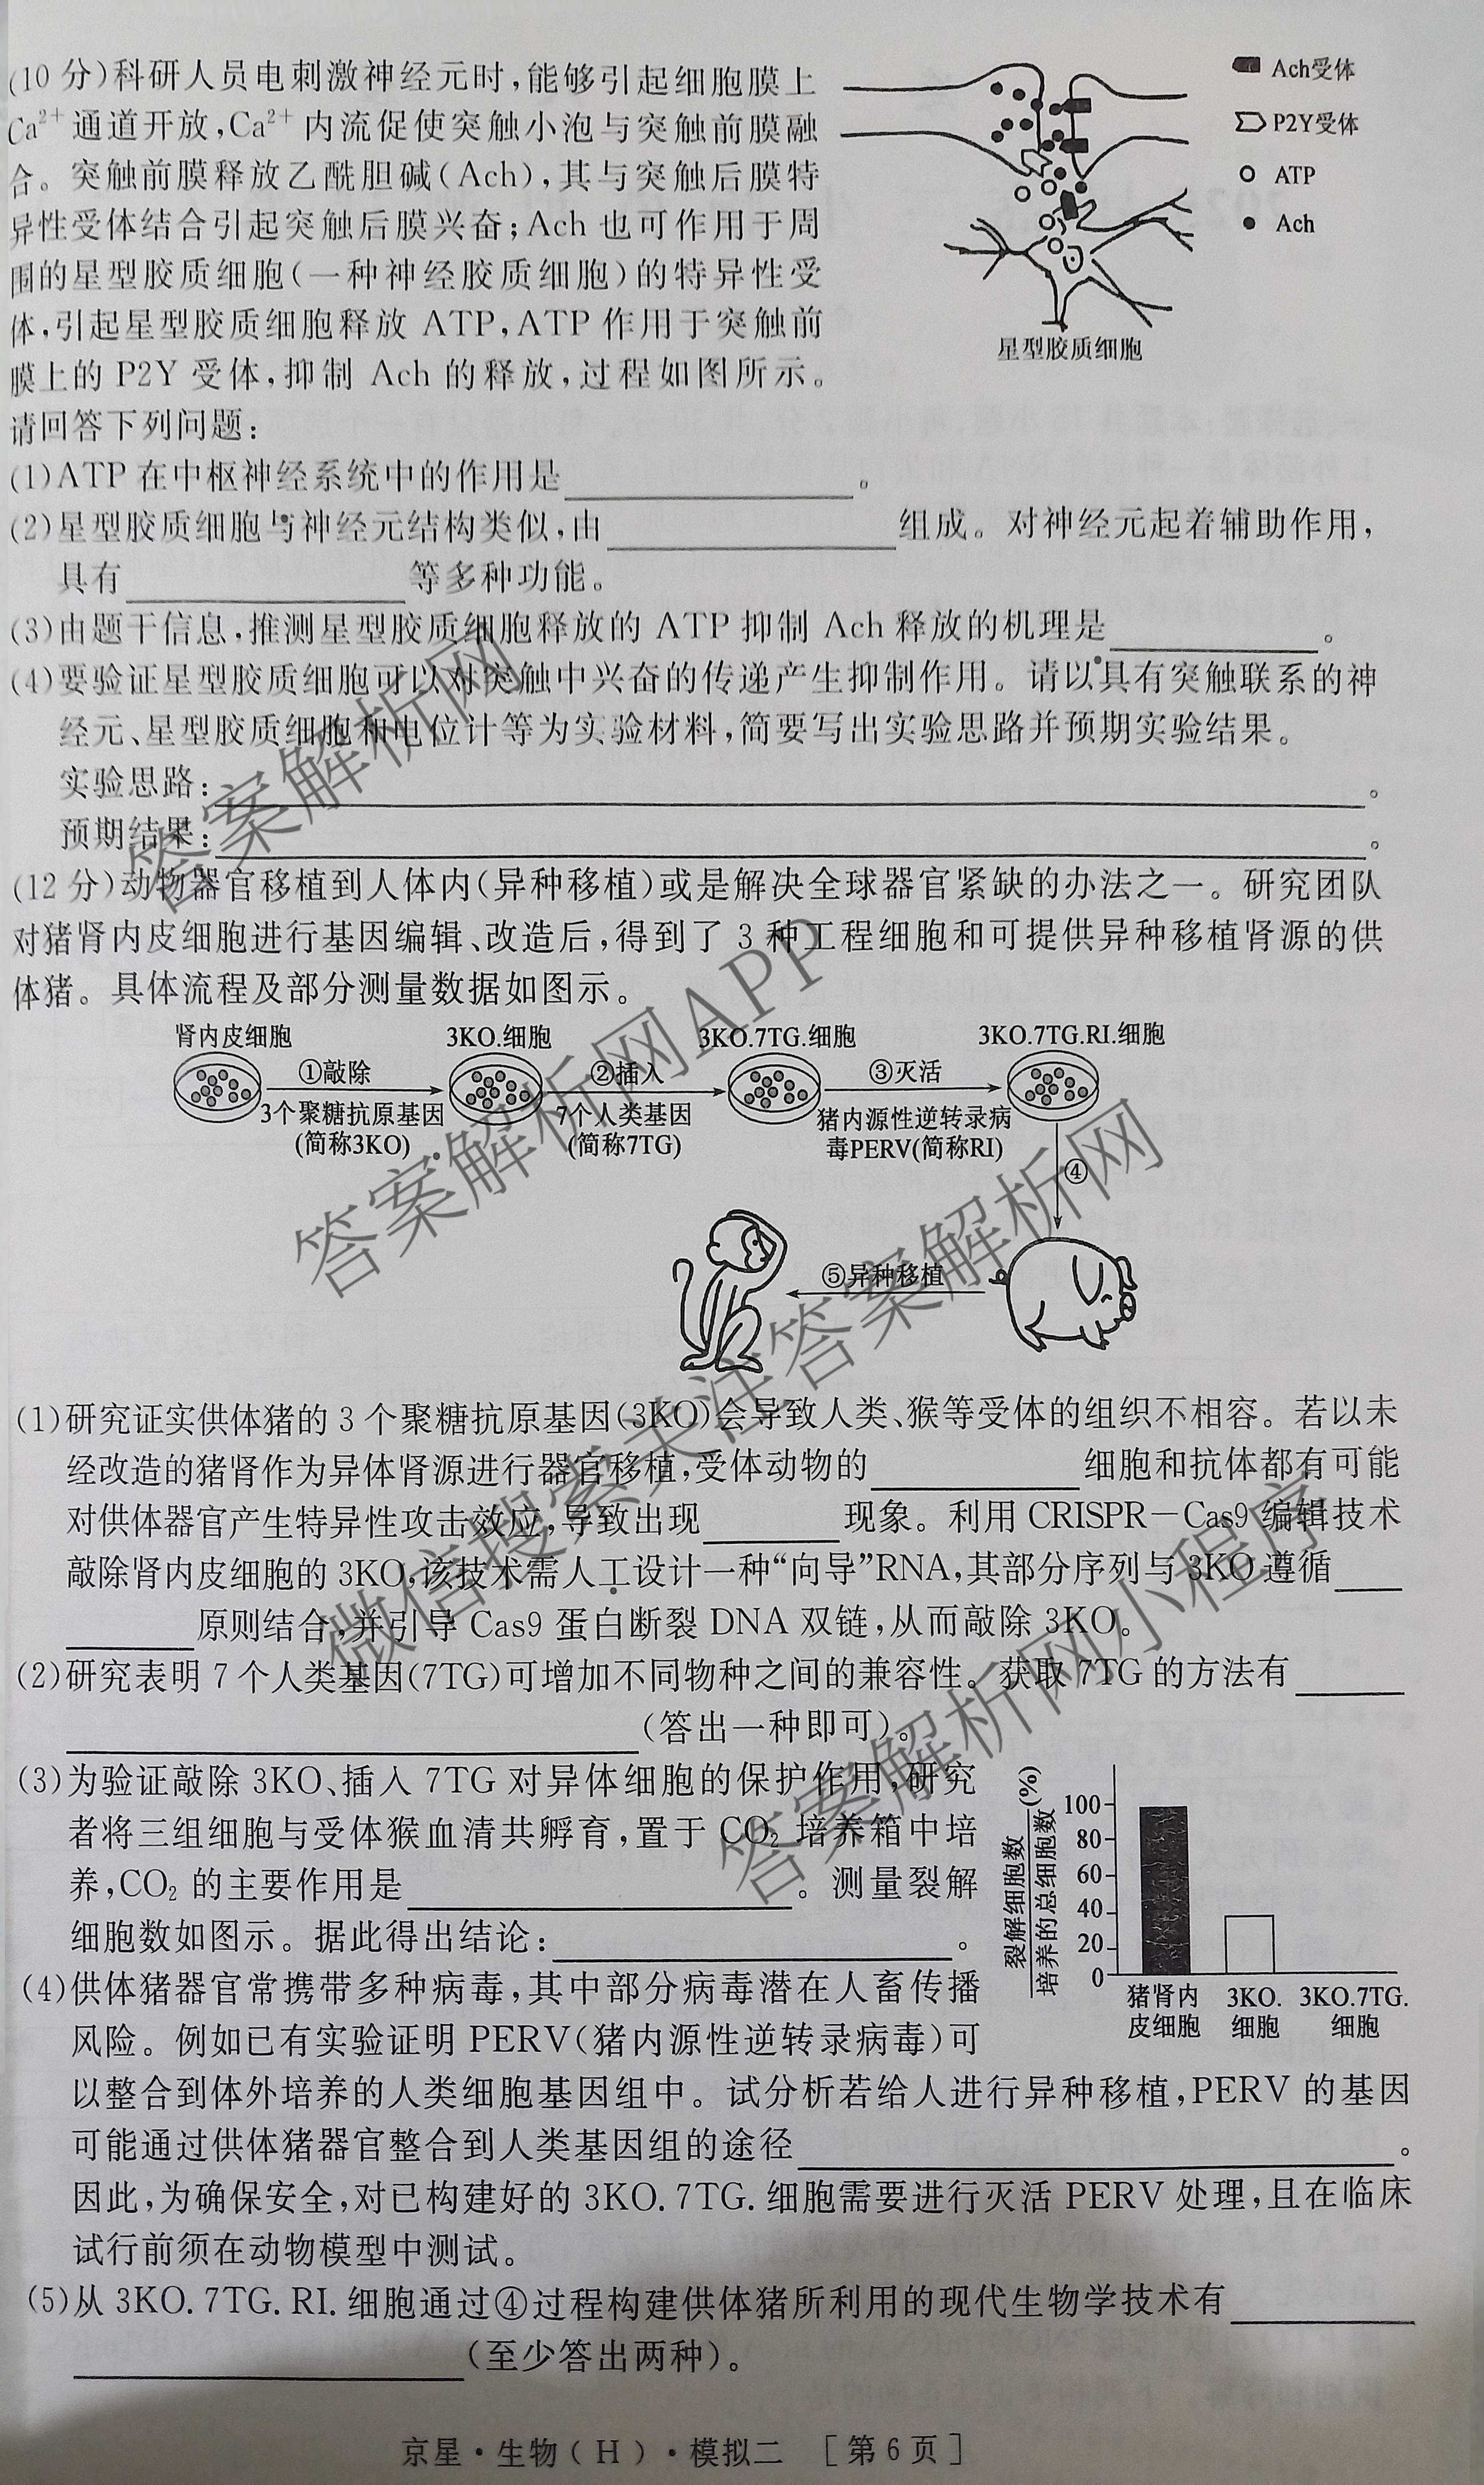 (10分)科研人员电刺激神经元时,能够引起细胞膜上
Ca²⁺通道开放,Ca²⁺内流促使突触小泡与突触前膜融
合。突触前膜释放乙酰胆碱(Ach),其与突触后膜特
异性受体结合引起突触后膜兴奋;Ach也可作用于周
围的星型胶质细胞(一种神经胶质细胞)的特异性受
体,引起星型胶质细胞释放ATP,ATP作用于突触前
膜上的P2Y受体,抑制Ach的释放,过程如图所示。
请回答下列问题:
Ach受体
P2Y受体
ATP
Ach
星型胶质细胞
(1)ATP在中枢神经系统中的作用是____________。
(2)星型胶质细胞与神经元结构类似,由____________组成。对神经元起着辅助作用,
具有____________等多种功能。
(3)由题干信息,推测星型胶质细胞释放的ATP抑制Ach释放的机理是____________。
(4)要验证星型胶质细胞可以对突触中兴奋的传递产生抑制作用。请以具有突触联系的神
经元、星型胶质细胞和电位计等为实验材料,简要写出实验思路并预期实验结果。
实验思路:____________。
预期结果:____________。
(12分)动物器官移植到人体内(异种移植)或是解决全球器官紧缺的办法之一。研究团队
对猪肾内皮细胞进行基因编辑、改造后,得到了3种工程细胞和可提供异种移植肾源的供
体猪。具体流程及部分测量数据如图示。
肾内皮细胞 3KO.细胞 3KO.7TG.细胞 3KO.7TG.RI.细胞
①敲除 ②插入 ③灭活
3个聚糖抗原基因 7个人类基因 猪内源性逆转录病
(简称3KO) (简称7TG) 毒PERV(简称RI)
④
⑤异种移植
(1)研究证实供体猪的3个聚糖抗原基因(3KO)会导致人类、猴等受体的组织不相容。若以未
经改造的猪肾作为异体肾源进行器官移植,受体动物的____________细胞和抗体都有可能
对供体器官产生特异性攻击效应,导致出现________现象。利用CRISPR-Cas9编辑技术
敲除肾内皮细胞的3KO,该技术需人工设计一种“向导”RNA,其部分序列与3KO遵循____
________原则结合,并引导Cas9蛋白断裂DNA双链,从而敲除3KO。
(2)研究表明7个人类基因(7TG)可增加不同物种之间的兼容性。获取7TG的方法有______
____________(答出一种即可)。
(3)为验证敲除3KO、插入7TG对异体细胞的保护作用,研究
者将三组细胞与受体猴血清共孵育,置于CO₂培养箱中培
养,CO₂的主要作用是____________。测量裂解
细胞数如图示。据此得出结论:____________。
裂解细胞数
培养的总细胞数
(%)
100
80
60
40
20
0
猪肾内 3KO. 3KO.7TG.
皮细胞 细胞 细胞
(4)供体猪器官常携带多种病毒,其中部分病毒潜在人畜传播
风险。例如已有实验证明PERV(猪内源性逆转录病毒)可
以整合到体外培养的人类细胞基因组中。试分析若给人进行异种移植,PERV的基因
可能通过供体猪器官整合到人类基因组的途径____________。
因此,为确保安全,对已构建好的3KO.7TG.细胞需要进行灭活PERV处理,且在临床
试行前须在动物模型中测试。
(5)从3KO.7TG.RI.细胞通过④过程构建供体猪所利用的现代生物学技术有________
____________(至少答出两种)。
京星·生物(H)·模拟二 [第6页]
答案解析网
答案解析网APP
微信搜索关注答案解析网
答案解析网小程序